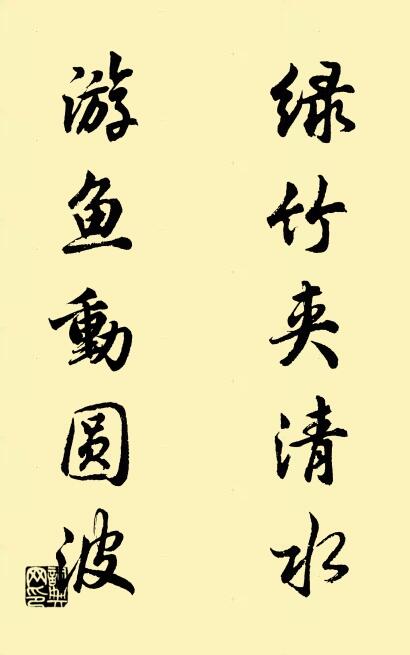 绿竹夹清水
游鱼動圆波